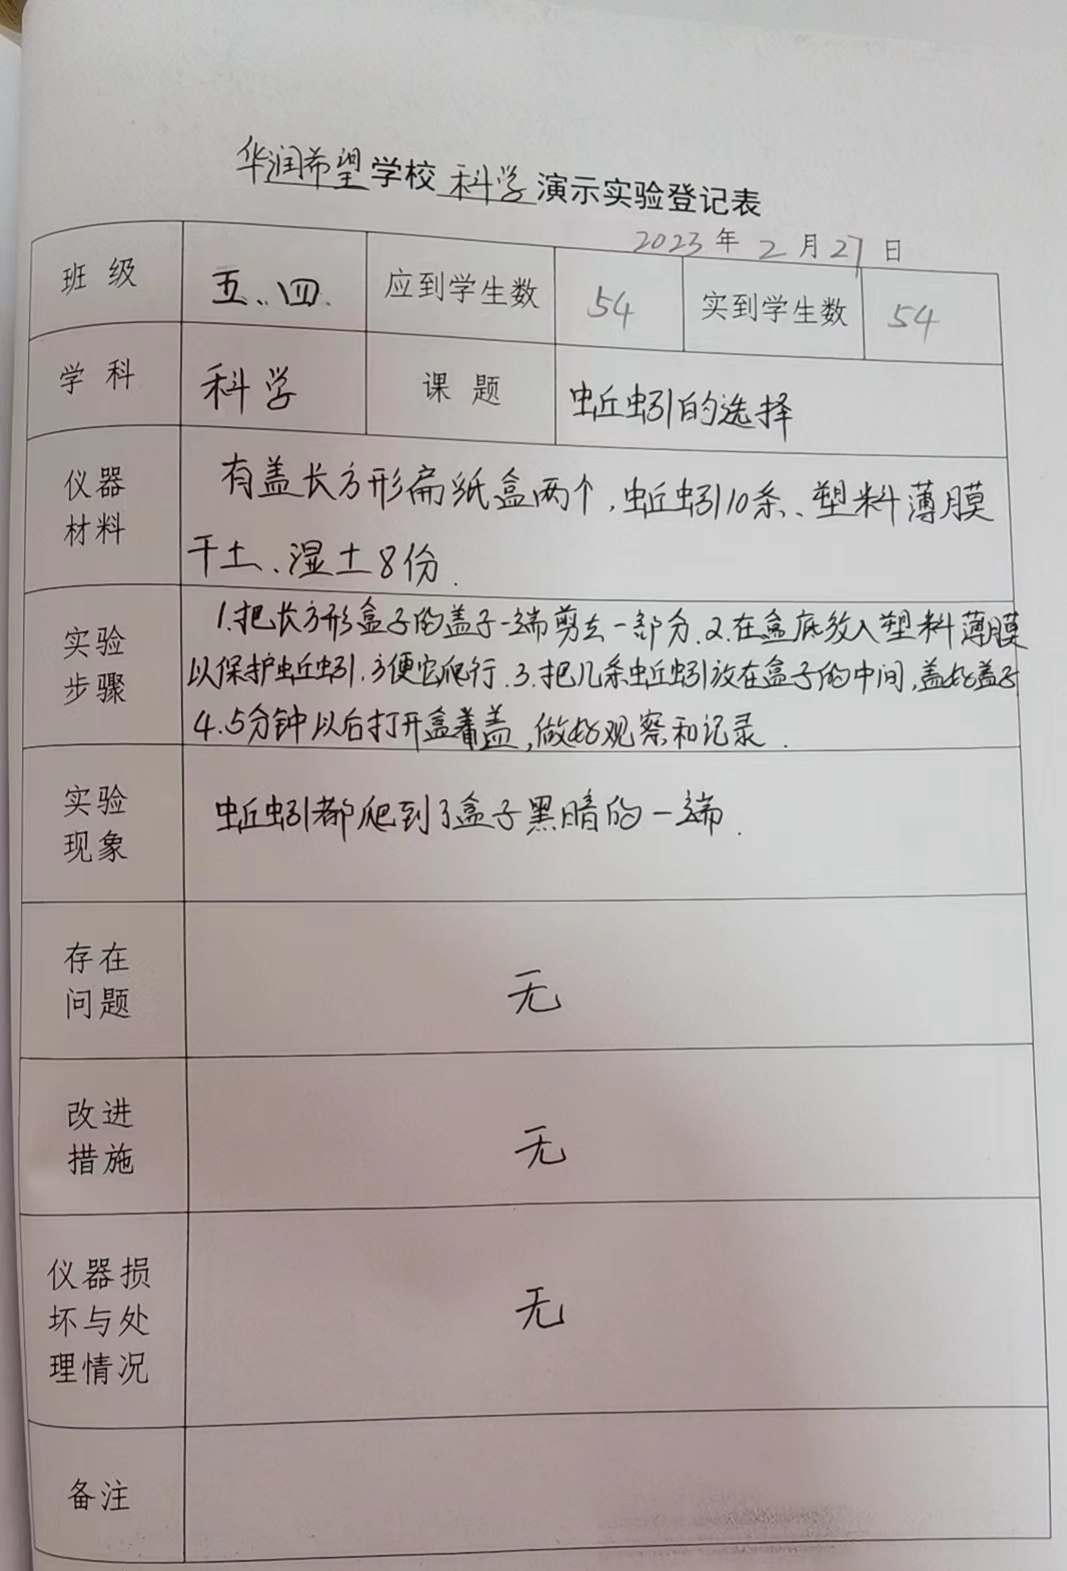 华润希望学校科学演示实验登记表
2023年2月27日
班级 五.四. 应到学生数 54 实到学生数 54
学科 科学 课题 蚯蚓的选择
仪器材料
有盖长方形扁纸盒两个,蚯蚓10条、塑料薄膜
干土、湿土8份.
实验步骤
1.把长方形盒子的盖子一端剪去一部分.2.在盒底放入塑料薄膜
以保护蚯蚓.方便它爬行.3.把几条蚯蚓放在盒子的中间,盖好盖子
4.5分钟以后打开盒盖,做好观察和记录.
实验现象
蚯蚓都爬到了盒子黑暗的一端.
存在问题
无
改进措施
无
仪器损坏与处理情况
无
备注